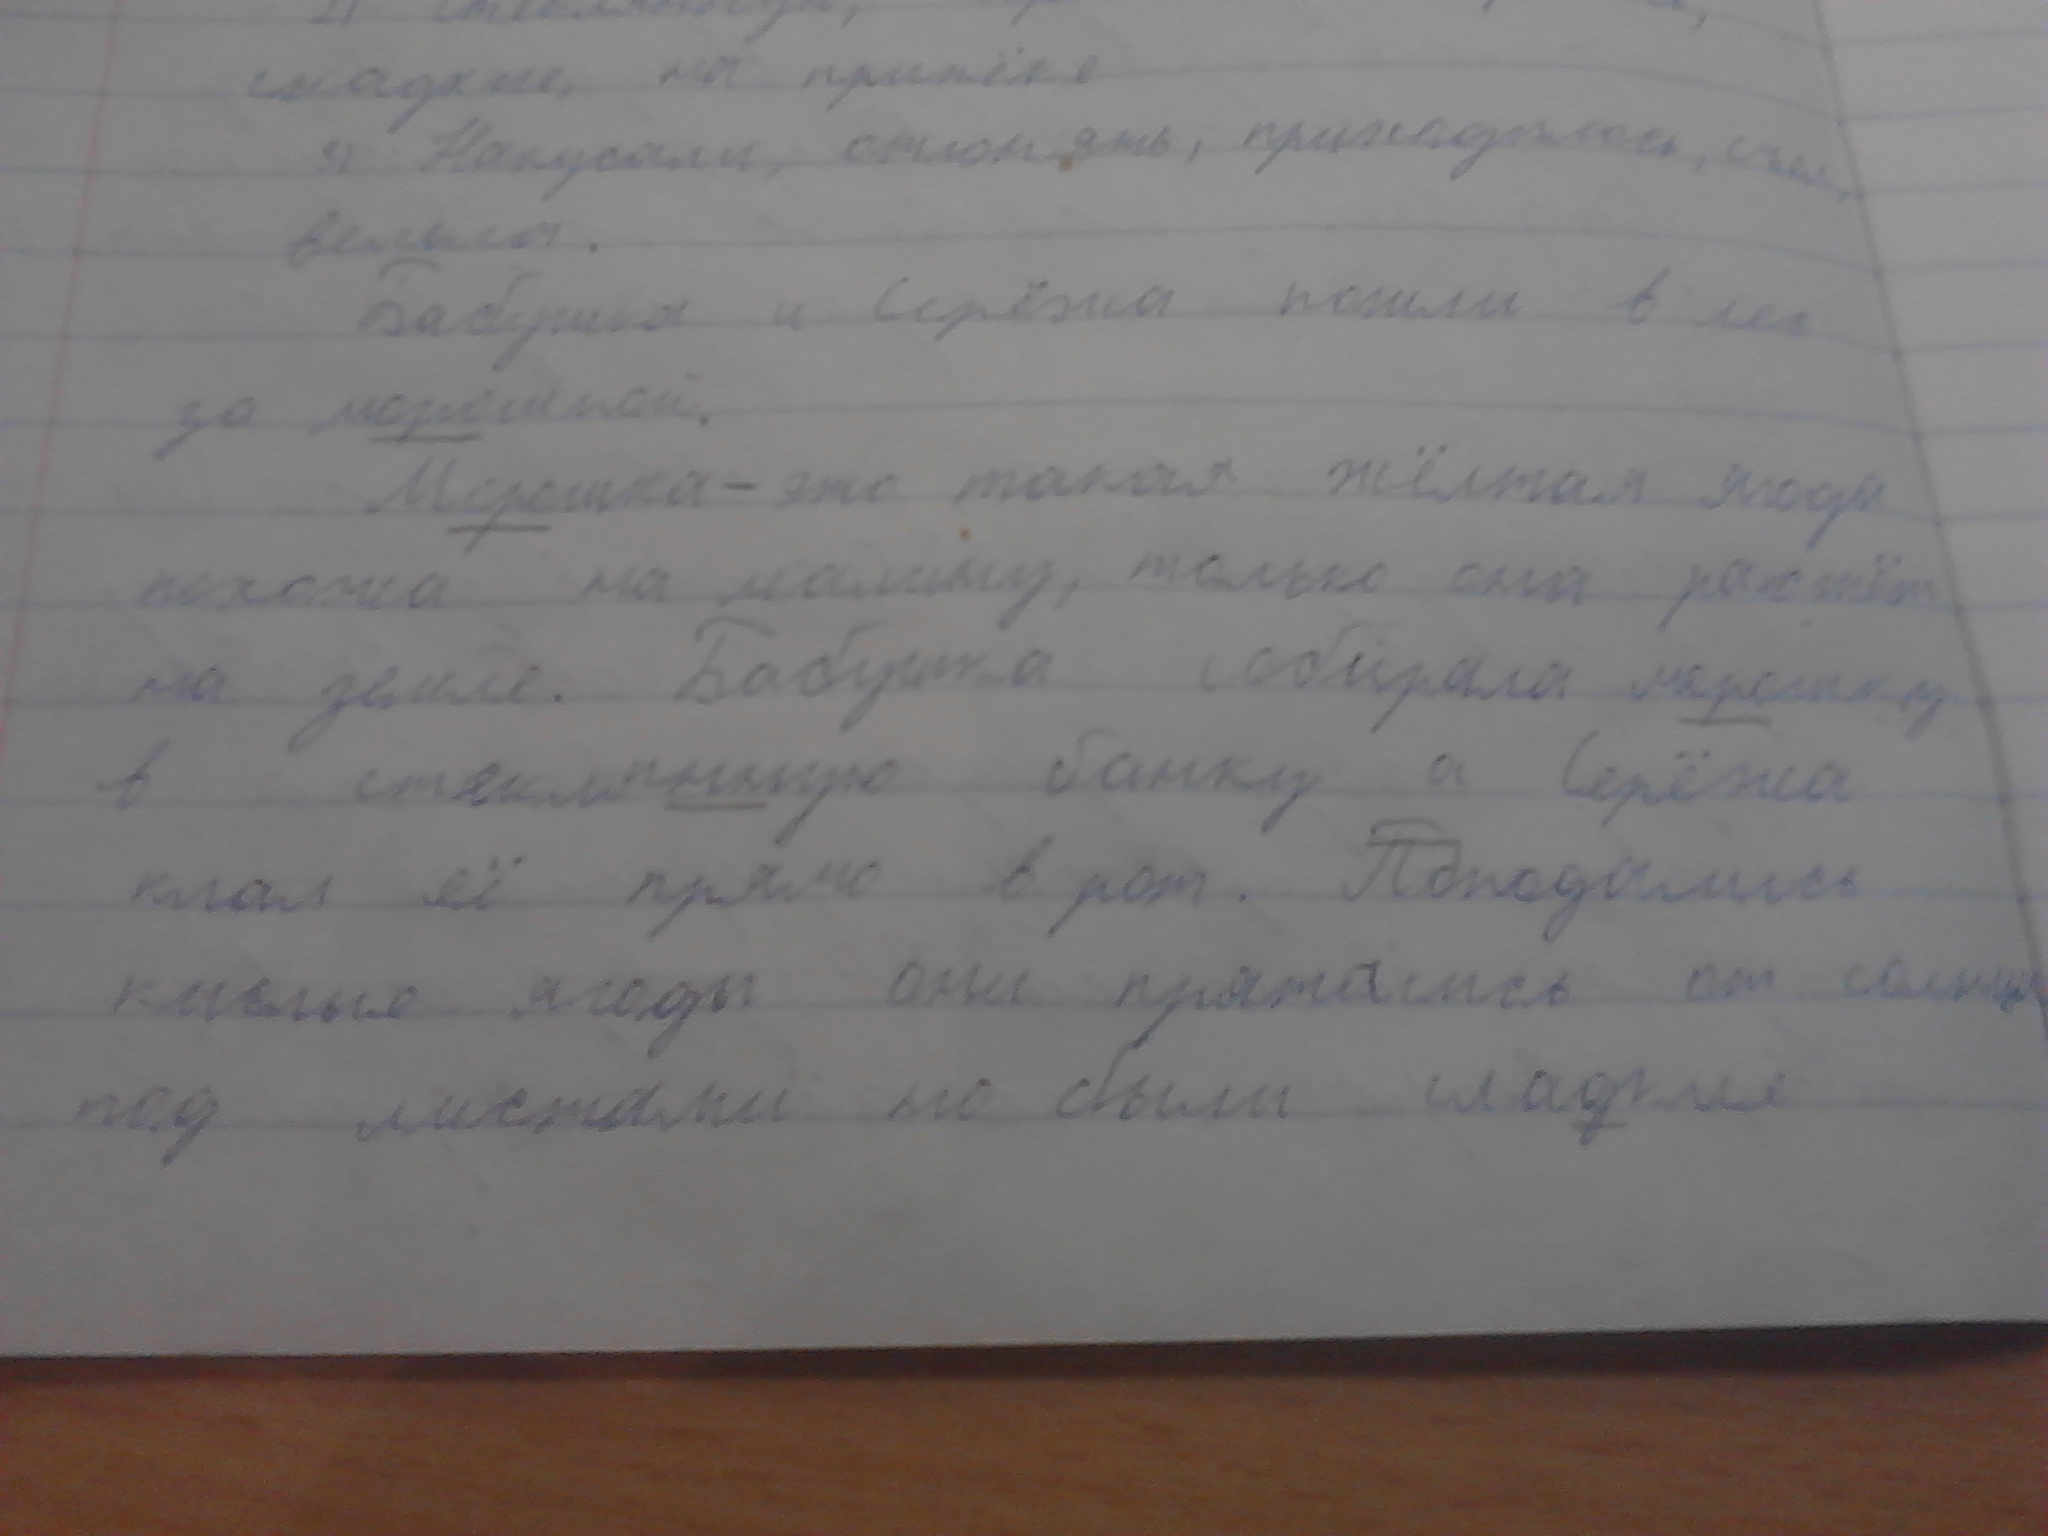 2) стеклянную,
сладкие, на припёке
3) Накусали, отгонять, принадулось, съел,
велела.
Бабушка и Серёжа пошли в лес
за морошкой.
Морошка - это такая жёлтая ягода
похожа на малину, только она растёт
на земле. Бабушка собирала морошку
в стяклянную банку а Серёжа
клал её прямо в рот. Попадались
кислые ягоды они прятались от солнца
под листами но были сладкие